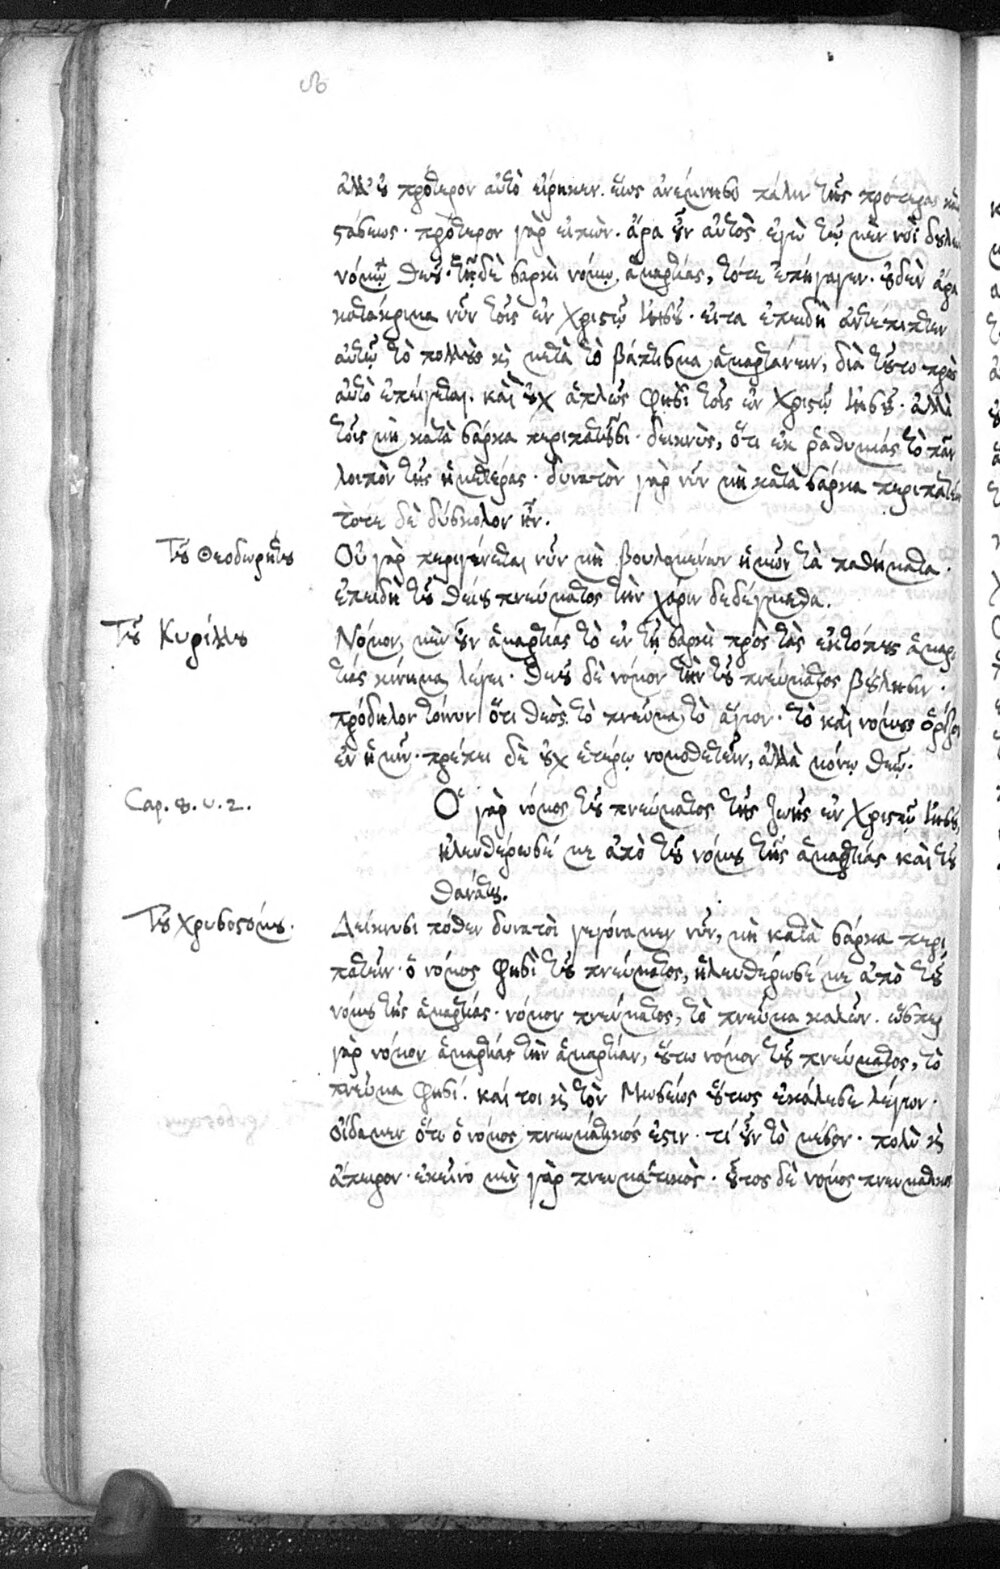 ἀλλ' ὁ πρότερον αὐτὸ εἴρηκεν. ἕως ἀνέμνησε πάλιν τῆς προτέρας κατα
στάσεως· πρότερον γὰρ εἰπὼν. ἄρα οὖν αὐτὸς ἐγὼ τῷ μὲν νοῒ δουλεύω
νόμῳ θεοῦ· τῇ δὲ σαρκὶ νόμῳ ἁμαρτίας, τότε ἐπήγαγεν· οὐδὲν ἄρα
κατάκριμα νῦν τοῖς ἐν Χριστῷ Ἰησοῦ· εἶτα ἐπειδὴ ἀντέπιπτεν
αὐτῷ τὸ πολλοὺς καὶ μετὰ τὸ βάπτισμα ἁμαρτάνειν, διὰ τοῦτο πρὸς
αὐτὸ ἐπείγεται. καὶ οὐχ ἁπλῶς φησὶ τοῖς ἐν Χριστῷ Ἰησοῦ· ἀλλὰ
τοῖς μὴ κατὰ σάρκα περιπατοῦσι· δεικνὺς, ὅτι ἐκ ῥαθυμίας τὸ πᾶν
λοιπὸν τῆς ἡμετέρας· δυνατὸν γὰρ νῦν μὴ κατὰ σάρκα περιπατεῖν
τότε δὲ δύσκολον ἦν.
Τοῦ Θεοδωρήτου Οὐ γὰρ περιγίνεται νῦν μὴ βουλομένων ἡμῶν τὰ παθήματα.
ἐπειδὴ τοῦ θείου πνεύματος τὴν χάριν δεδέγμεθα.
Τοῦ Κυρίλλου Νόμον μὲν οὖν ἁμαρτίας τὸ ἐν τῇ σαρκὶ πρὸς τὰς ἐκτόπους ἁμαρ
τίας κίνημα λέγει· θεοῦ δὲ νόμον τὴν τοῦ πνεύματος βούλησιν·
πρόδηλον τοίνυν ὅτι θεὸς τὸ πνεῦμα τὸ ἅγιον· τὸ καὶ νόμους ὁρίζον
ἐν ἡμῖν· πρέπει δὲ οὐχ ἑτέρῳ νομοθετεῖν, ἀλλὰ μόνῳ θεῷ.
Cap. 8. v. 2. Ὁ γὰρ νόμος τοῦ πνεύματος τῆς ζωῆς ἐν Χριστῷ Ἰησοῦ,
ἠλευθέρωσέ με ἀπὸ τοῦ νόμου τῆς ἁμαρτίας καὶ τοῦ
θανάτου.
Τοῦ Χρυσοστόμου. Δείκνυσι πόθεν δυνατοὶ γεγόναμεν νῦν, μὴ κατὰ σάρκα περι
πατεῖν· ὁ νόμος φησὶ τοῦ πνεύματος, ἠλευθέρωσέ με ἀπὸ τοῦ
νόμου τῆς ἁμαρτίας· νόμον πνεύματος, τὸ πνεῦμα καλῶν. ὥσπερ
γὰρ νόμον ἁμαρτίας τὴν ἁμαρτίαν, οὕτω νόμον τοῦ πνεύματος, τὸ
πνεῦμα φησί. καί τοι καὶ τὸν Μωσέως οὕτως ἐκάλεσε λέγων·
οἴδαμεν ὅτι ὁ νόμος πνευματικός ἐστιν· τί οὖν τὸ μέσον· πολὺ καὶ
ἄπειρον· ἐκεῖνο μὲν γὰρ πνευματικὸς· οὗτος δὲ νόμος πνεύματος